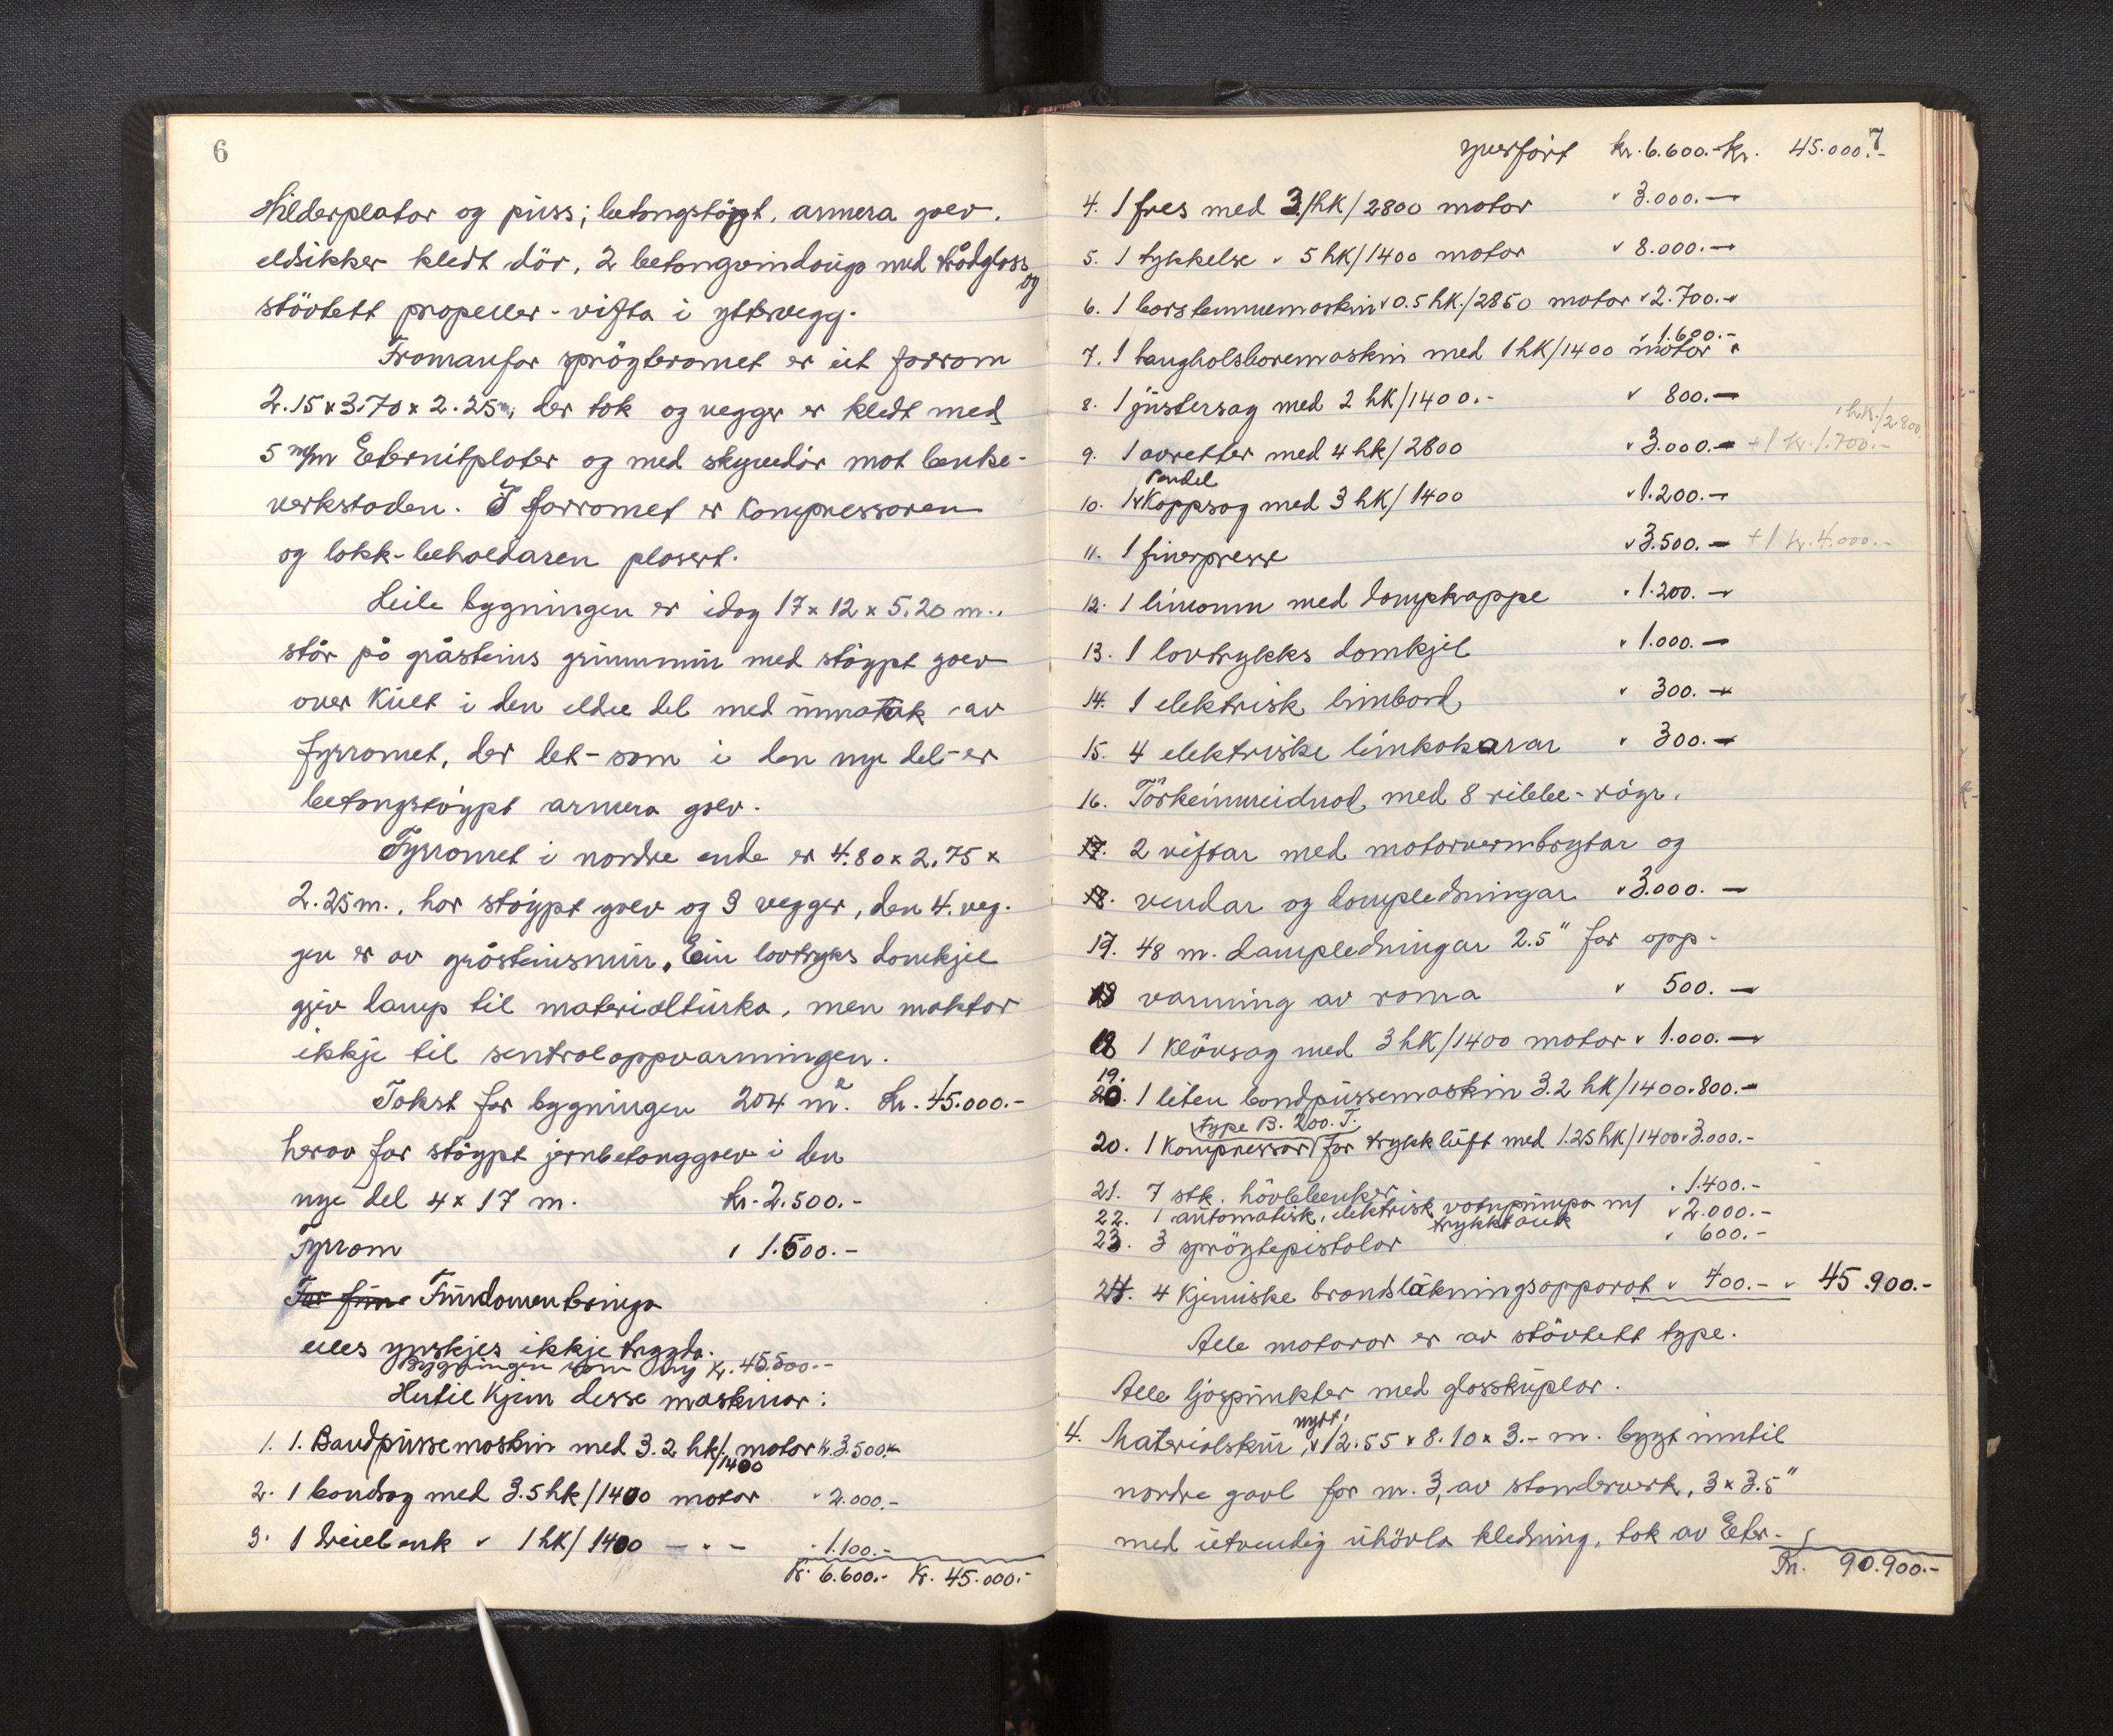 6
Hilderplator og puss; betongstøypt, armera golv,
eldsikker kledt dör, 2 betongvindaugo med trådglass
og
stövtett propeller-vifta i yttervegg.
Framanfor spröyteromet er eit forrom
2.15 x 3.70 x 2.25 m, der tak og vegger er kledt med
5 m/m Eternitplater og med skyvedör mot benke-
verkstaden. I forromet er Kompressoren
og lakk-behaldaren plasert.
Heile bygningen er idag 17 x 12 x 5.20 m.,
står på gråsteins grunnmur med stöypt golv
over Kult i den eldre del med unnatak av
fyrromet, der det - som i den nye del - er
betongstöypt armera golv.
Fyrromet i nordre ende er 4.80 x 2.75 x
2.25 m., har stöypt golv og 3 vegger, den 4. veg-
gen er av gråsteinsmur. Ein lavtryks damkjel
gjev damp til materialturka, men maktar
ikkje til sentraloppvarmingen.
Takst for bygningen 204 m². Kr. 45.000.-
herav for stöypt jernbetonggolv i den
nye del 4 x 17 m. Kr. 2.500.-
Fyrrom " 1.500.-
For fun- Fundamenteringa
elles ynskjes ikkje trygda.
Bygningen som ny Kr. 45.500.-
Hertil Kjem desse maskinar:
1. 1. Bandpussemaskin med 3.2 hk/ motor kr. 3.500.-
/1400
2. 1 bandsag med 3.5 hk/1400 motor " 2.000.-
3. 1 dreiebenk " 1 hk/1400 - " - " 1.100.-
Kr. 6.600.- Kr. 45.000.-
7
yverfört kr. 6.600.- Kr. 45.000.-
4. 1 fres med 3 /hk/2800 motor " 3.000.-
5. 1 tykkelse " 5 hk/1400 motor " 8.000.-
6. 1 borstemmemaskin " 0.5 hk./2850 motor " 2.700.-
" 1.600.-
7. 1 langholsboremaskin med 1 hk/1400 motor "
8. 1 justersag med 2 hk/1400.- " 800.-
1 hk./2800
9. 1 avretter med 4 hk/2800 " 3.000.- + 1 kr. 1.700.-
Pendel
10. 1 Kappsag med 3 hk/1400 " 1.200.-
11. 1 finerpresse " 3.500.- + 1 kr. 4.000.-
12. 1 limomn med dampkappe " 1.200.-
13. 1 lavtrykks damkjel " 1.000.-
14. 1 elektrisk limbord " 300.-
15. 4 elektriske limkokarar " 300.-
16. Törkeinnreidnad med 8 ribbe-röyr,
17. 2 viftar med motorvernbrytar og
18. vendar og dampledningar " 3.000.-
17. 48 m. dampledningar 2.5" for opp-
18 varming av roma " 500.-
18 1 Klövsag med 3 hk/1400 motor " 1.000.-
19.
20. 1 liten bandpussemaskin 3.2 hk/1400 " 800.-
type B. 200. T.
20. 1 Kompressor for trykkluft med 1.25 hk/1400 " 3.000.-
21. 7 stk. hövlebenker. " 1.400.-
22. 1 automatisk, elektrisk vatnpumpa m/ " 2.000.-
trykktank
23. 3 spröytepistolar " 600.-
24. 4 Kjemiske brandsläkningsapparat " 700.- " 45.900.-
Alle motorar er av stövtett type.
Alle ljospunkter med glasskuplar.
nytt,
4. Materialskur, 12.55 x 8.10 x 3.- m. bygt inntil
nordre gavl for nr. 3, av standerverk, 3 x 3.5"
med utvendig uhövla kledning, tak av Eter-
Kr. 90.900.-